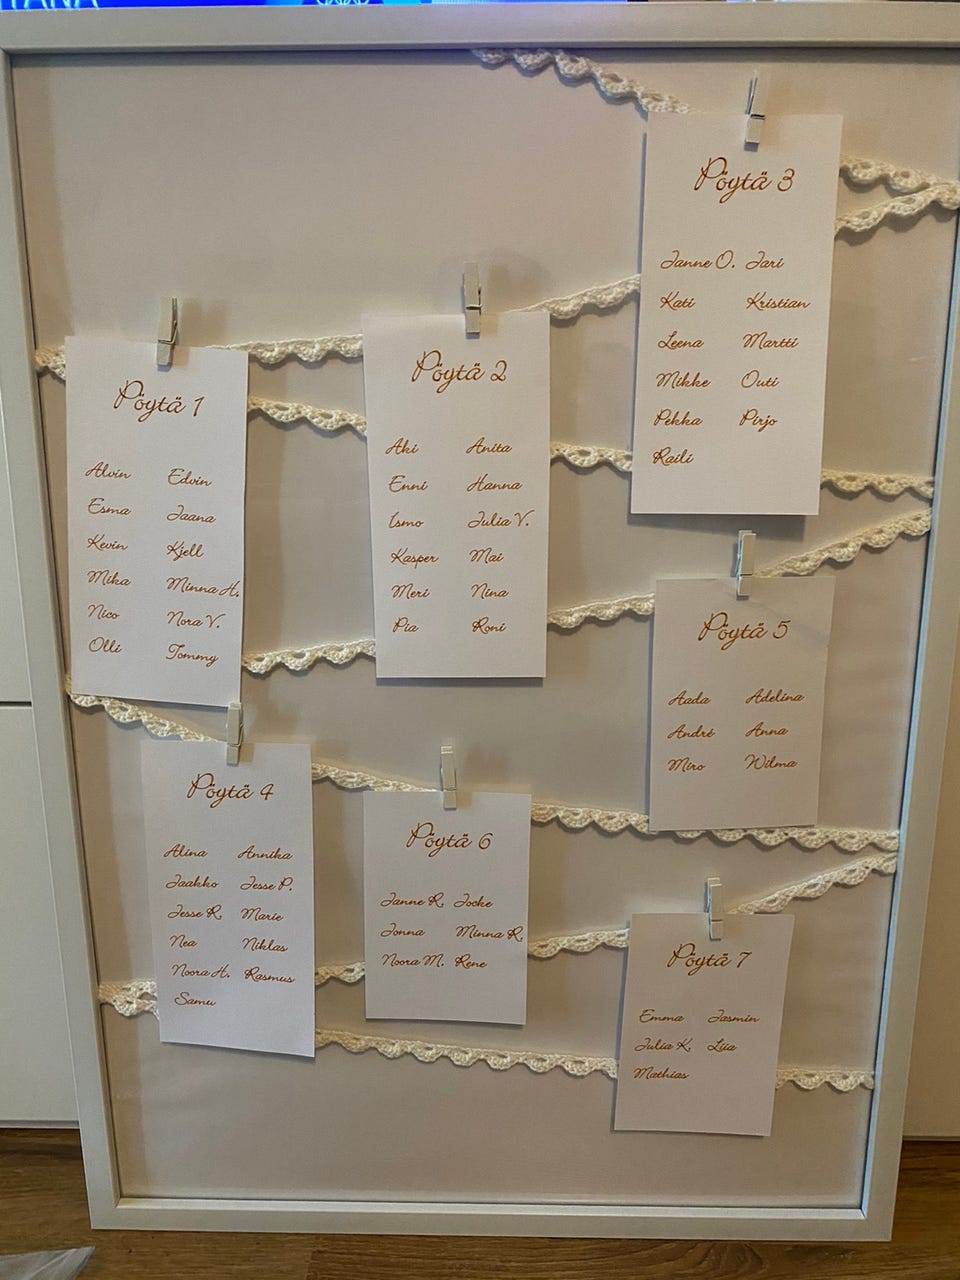 Pöytä 1
Alvin Edvin
Esma Jaana
Kevin Kjell
Mika Minna H.
Nico Nora V.
Olli Tommy
Pöytä 2
Aki Anita
Enni Hanna
Ismo Julia V.
Kasper Mai
Meri Nina
Pia Roni
Pöytä 3
Janne O. Jari
Kati Kristian
Leena Martti
Mikke Outi
Pekka Pirjo
Raili
Pöytä 4
Alina Annika
Jaakko Jesse P.
Jesse R. Marie
Nea Niklas
Noora H. Rasmus
Samu
Pöytä 5
Aada Adelina
André Anna
Miro Wilma
Pöytä 6
Janne R. Jocke
Jonna Minna R.
Noora M. Rene
Pöytä 7
Emma Jasmin
Julia K. Liia
Mathias